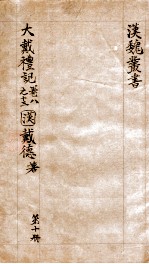 漢魏叢書
大戴禮記 卷八之十三 漢 戴德著
第十冊